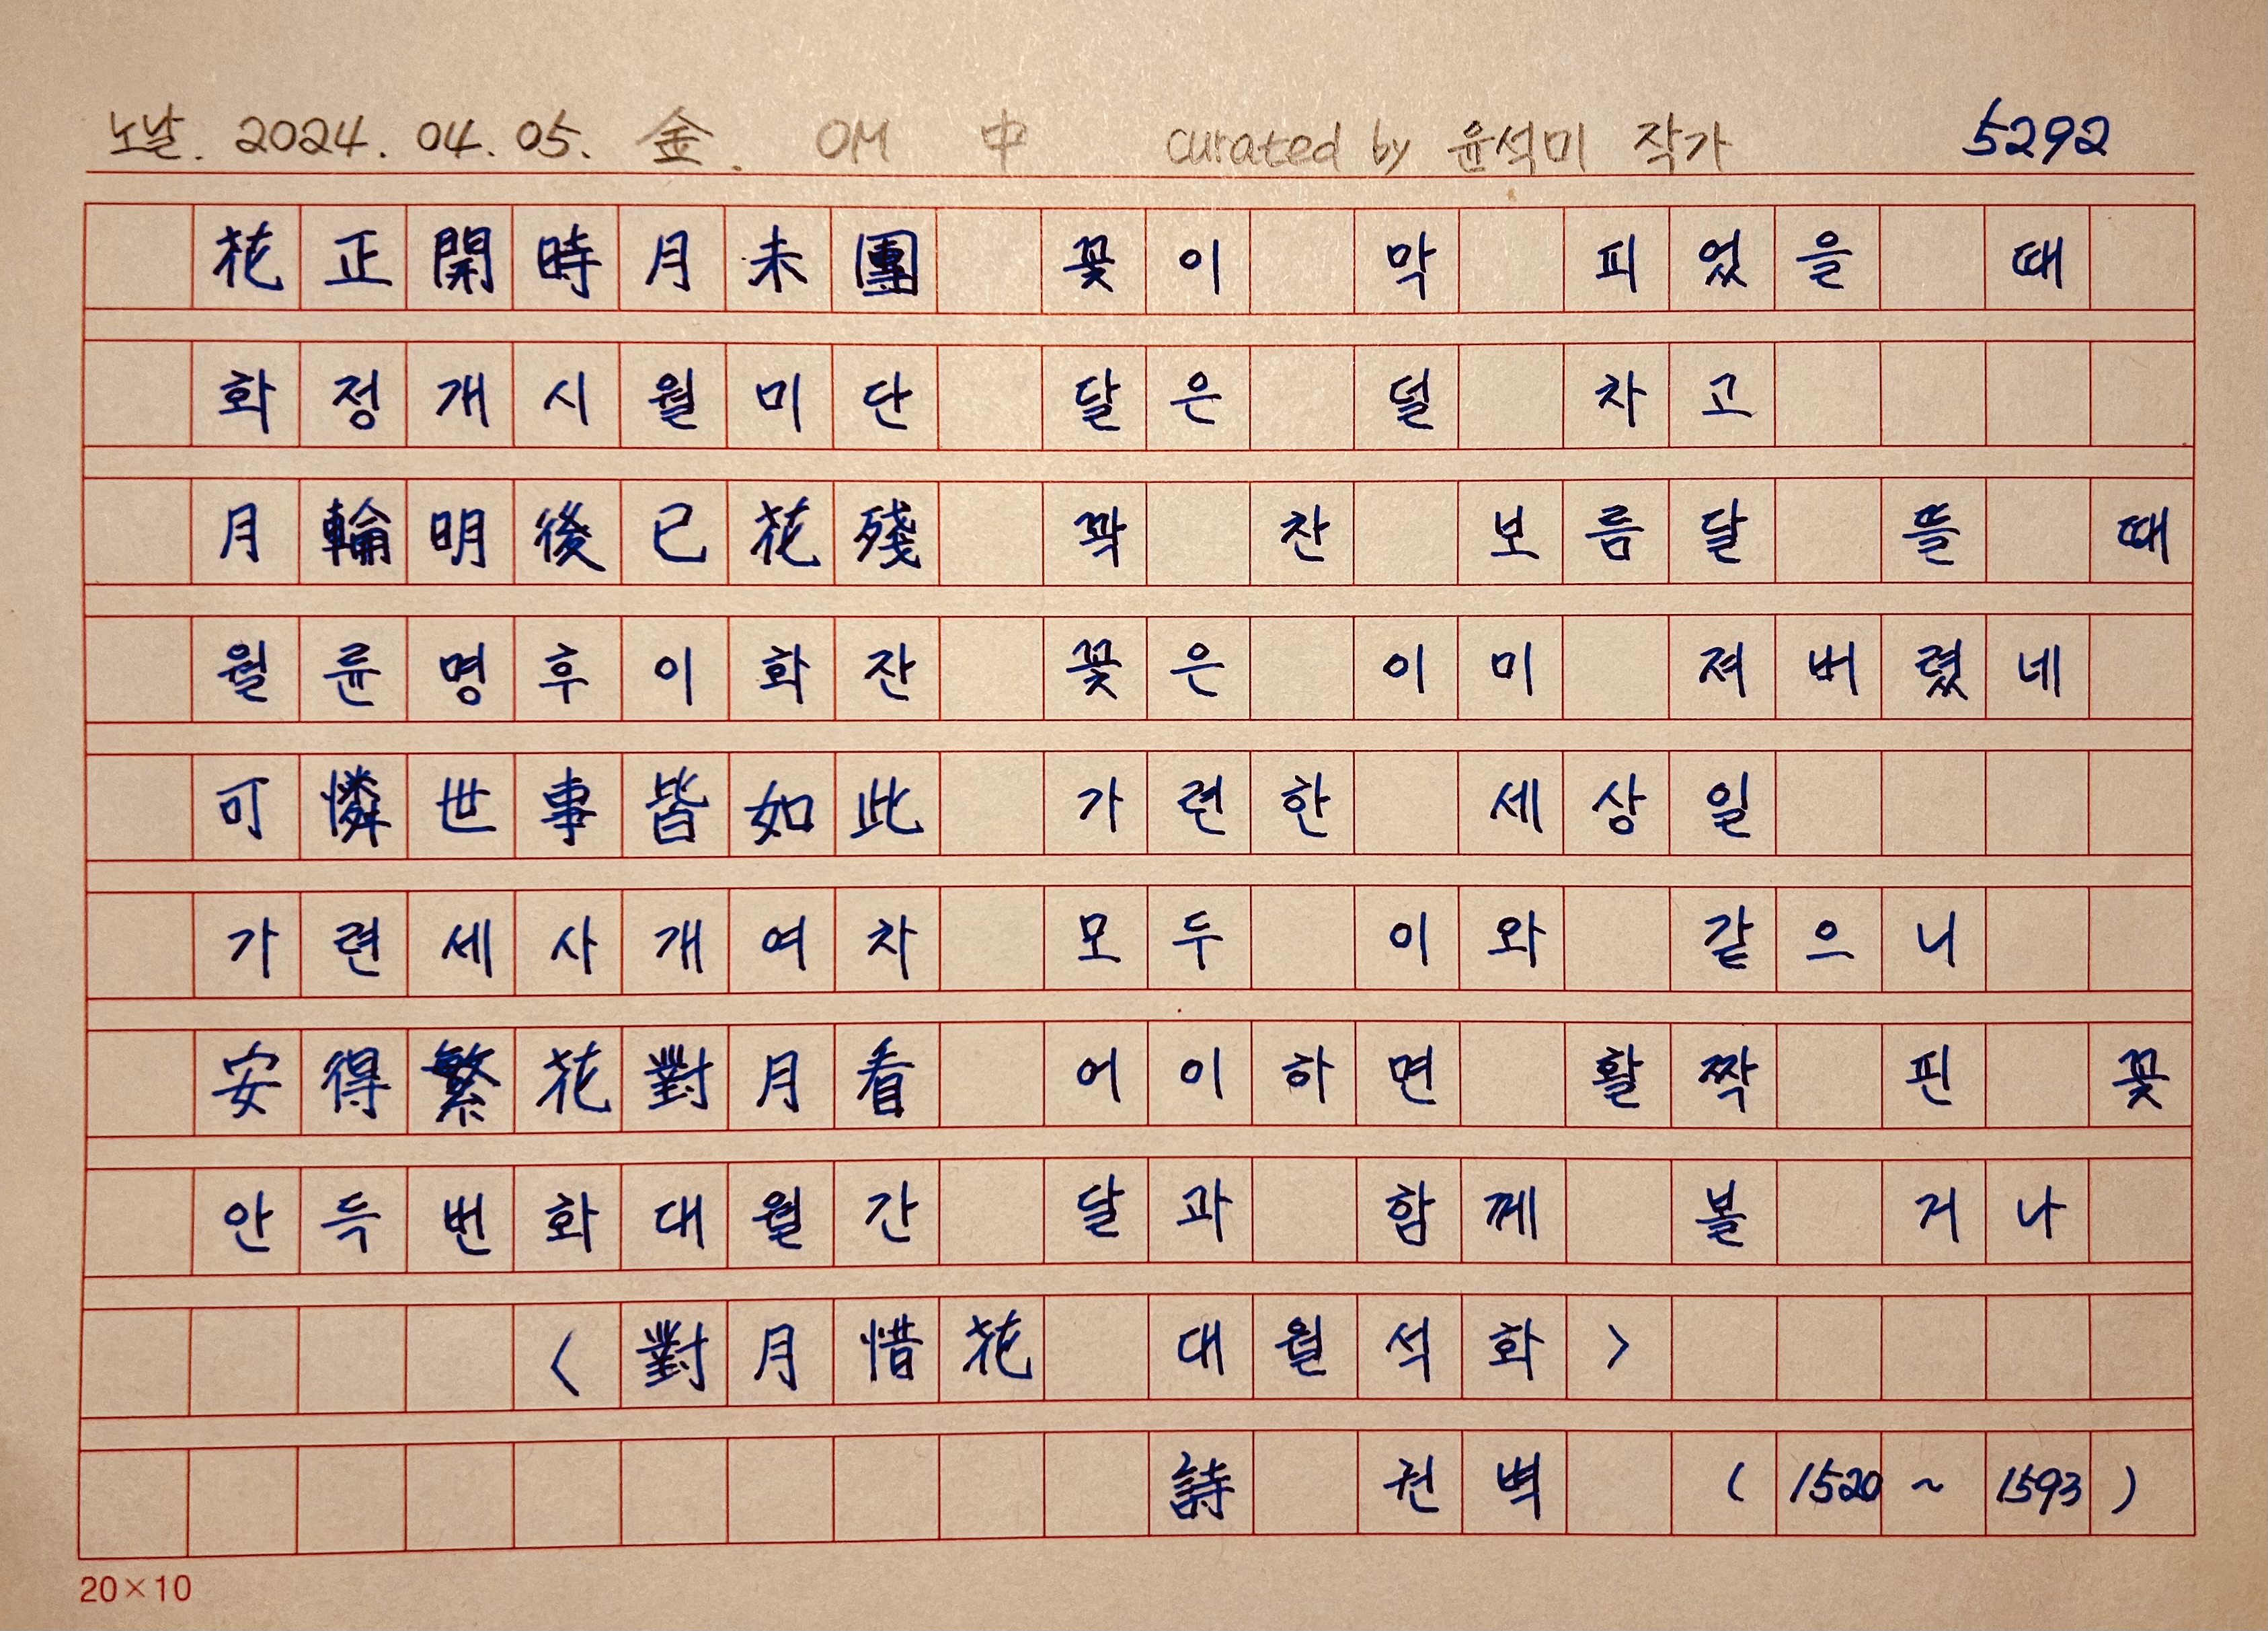 노날. 2024. 04. 05. 金. OM 中 curated by 윤석미 작가 5292
花正開時月未團 꽃이 막 피었을 때
화정개시월미단 달은 덜 차고
月輪明後已花殘 꽉 찬 보름달 뜰 때
월륜명후이화잔 꽃은 이미 져버렸네
可憐世事皆如此 가련한 세상일
가련세사개여차 모두 이와 같으니
安得繁花對月看 어이하면 활짝 핀 꽃
안득번화대월간 달과 함께 볼 거나
〈對月惜花 대월석화〉
詩 권벽 (1520~1593)
20×10